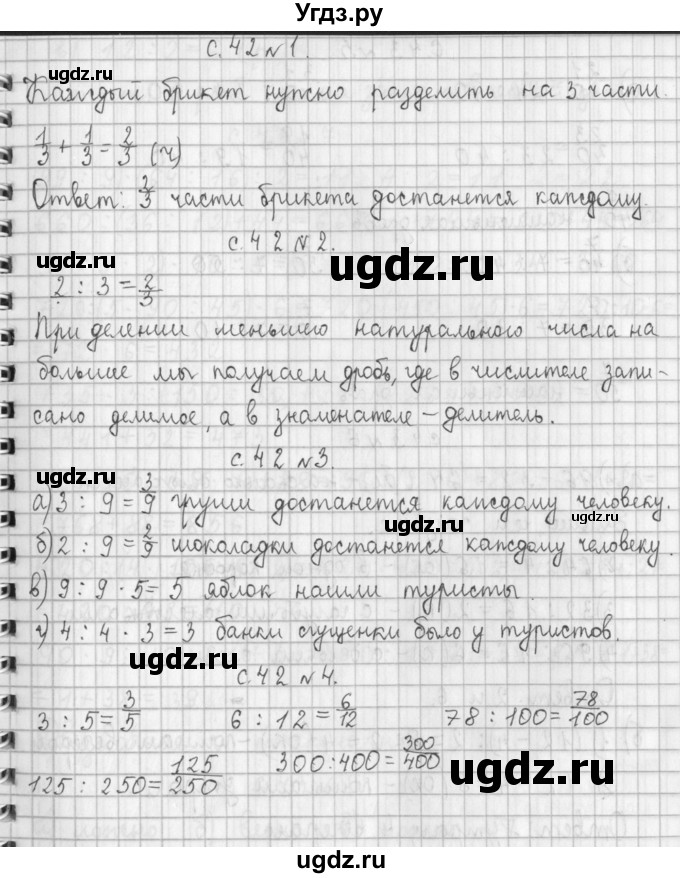 Угдз.ру
с.42 №1.
ugdz.ru ugdz.ru
Каждый брикет нужно разделить на 3 части.
1/3 + 1/3 = 2/3 (ч)
ugdz.ru
Ответ: 2/3 части брикета достанется каждому.
с.42 №2.
ugdz.ru ugdz.ru
2 : 3 = 2/3
При делении меньшего натурального числа на
большие мы получаем дробь, где в числителе запи-
сано делимое, а в знаменателе – делитель.
с.42 №3.
ugdz.ru
а) 3 : 9 = 3/9 груши достанется каждому человеку.
ugdz.ru ugdz.ru
б) 2 : 9 = 2/9 шоколадки достанется каждому человеку.
в) 9 : 9 · 5 = 5 яблок нашли туристы.
г) 4 : 4 · 3 = 3 банки сгущенки было у туристов.
ugdz.ru
с.42 №4.
3 : 5 = 3/5 6 : 12 = 6/12 78 : 100 = 78/100
ugdz.ru
125 : 250 = 125/250 300 : 400 = 300/400
ugdz.ru
ugdz.ru